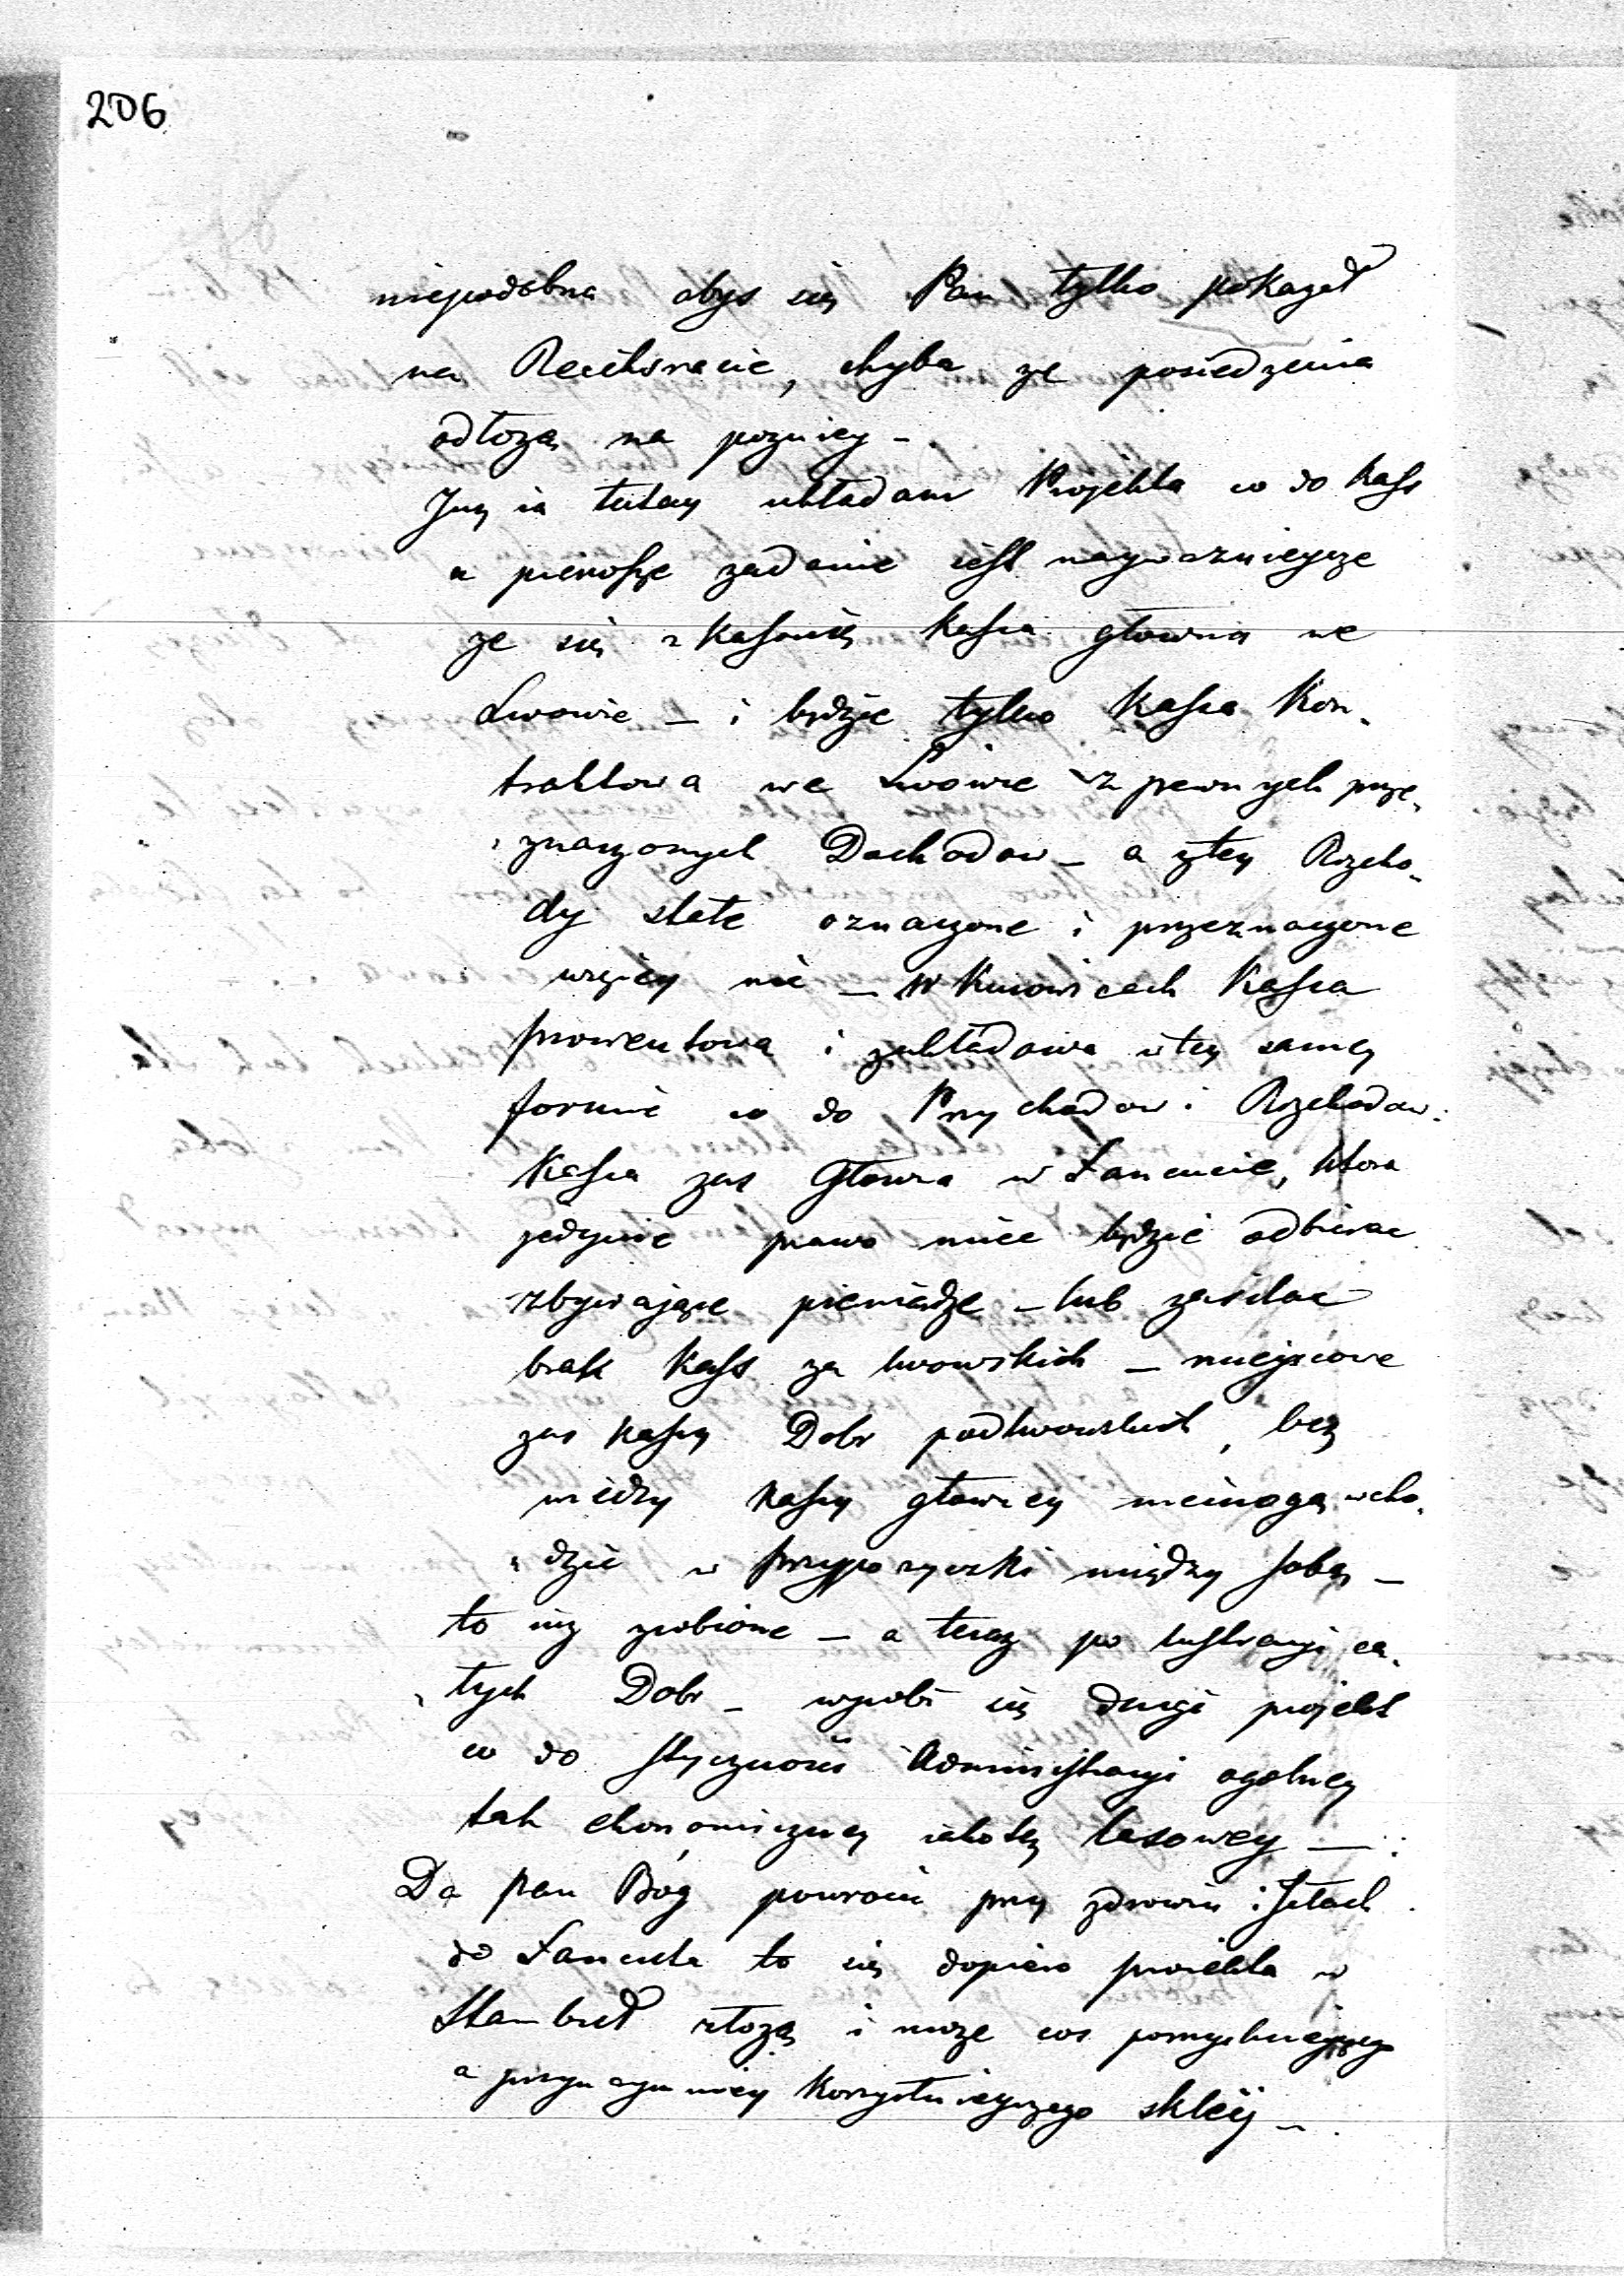 206
niepodobna abys się Pan tylko pokazał
na Reichsracie, chyba ze posiedzenia
odłozą na pozniey –
Juz ia tutay układam Projekta co do Kass
a pierwsze zadanie iest naywaznieysze
ze się skassuię Kassa głowna we
Lwowie – i będzie tylko Kassa Kon-
traktowa we Lwowie z pewnych prze-
znaczonych Dochodow – a z tey Rozcho-
dy state oznaczone i przeznaczone
więcey nic – w Kasa
prowentowa i zakładowa w tey samey
formie co do Przychodow i Rozchodow.
Kassa zas Głowna w Łancucie, ktora
jedynie prawo miec będzie odbierac
zbywające pieniądze – lub zasilac
brak Kass za lwowskich – miejscowe
zas Kassy Dobr podlwowskich, bez
wiedzy Kassy głowney niemogą wcho-
dzic w przypozyczki między sobą –
to iuz zrobione – a teraz po lustracyi ca-
łych Dobr – wyrobi się drugi projekt
co do stycznosci Administracyi ogolney
tak ekonomiczney iakotez lasowey –
Da Pan Bóg powrocic przy zdrowiu i siłach
do Łancuta to się dopiero proiekta w
Stambuł złozą i moze cos pomyslnieyszego
a przynaymniey Korzystnieyszego skleij –